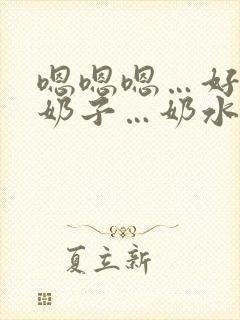 嗯嗯嗯…好
奶子…奶水
夏立新